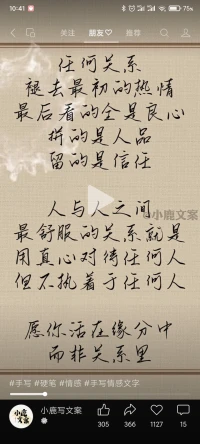 10:41
75%
关注
朋友
推荐
任何关系
褪去最初的热情
最后看的全是良心
拼的是人品
留的是信任
@小鹿文案
人与人之间
最舒服的关系就是
用真心对待任何人
但不执着于任何人
愿你活在缘分中
而非关系里
#手写 #硬笔 #情感 #手写情感文字
小鹿文案
小鹿写文案
305
366
1127
15